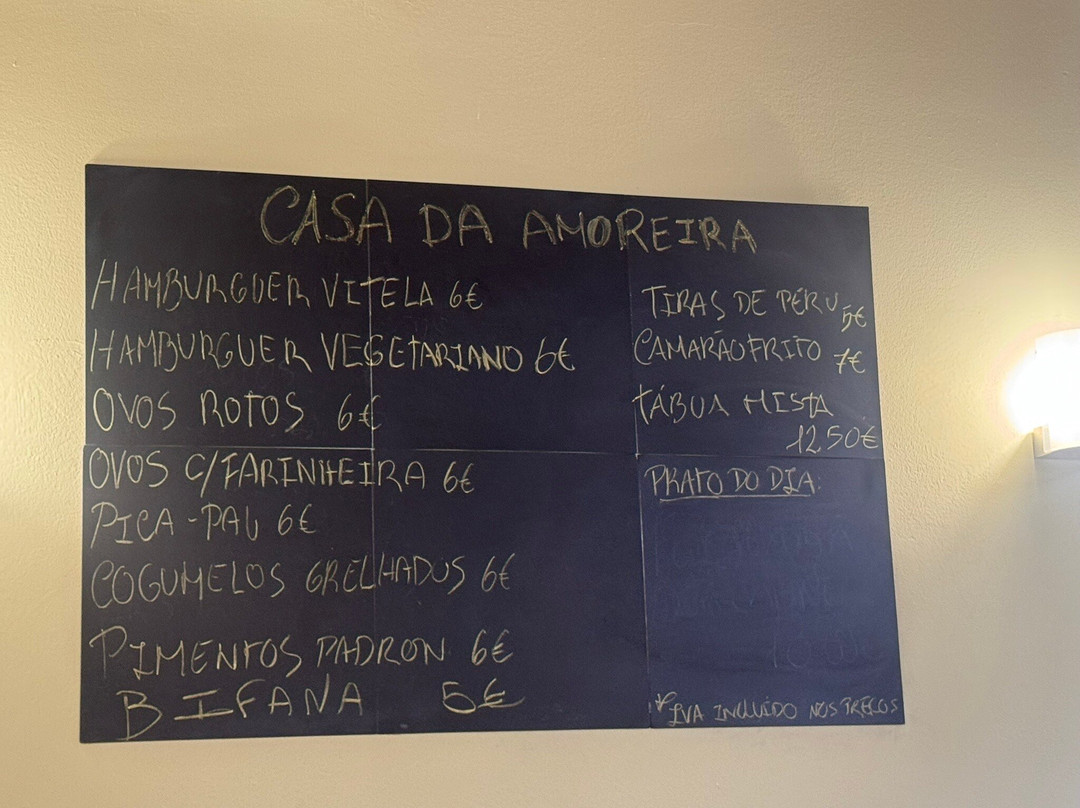 CASA DA AMOREIRA
HAMBURGUER VITELA 6€
HAMBURGUER VEGETARIANO 6€
OVOS ROTOS 6€
OVOS C/FARINHEIRA 6€
PICA-PAU 6€
COGUMELOS GRELHADOS 6€
PIMENTOS PADRON 6€
BIFANA 5€
TIRAS DE PERU 5€
CAMARÃO FRITO 7€
TÁBUA MISTA
12,50€
PRATO DO DIA:
*IVA INCLUÍDO NOS PREÇOS